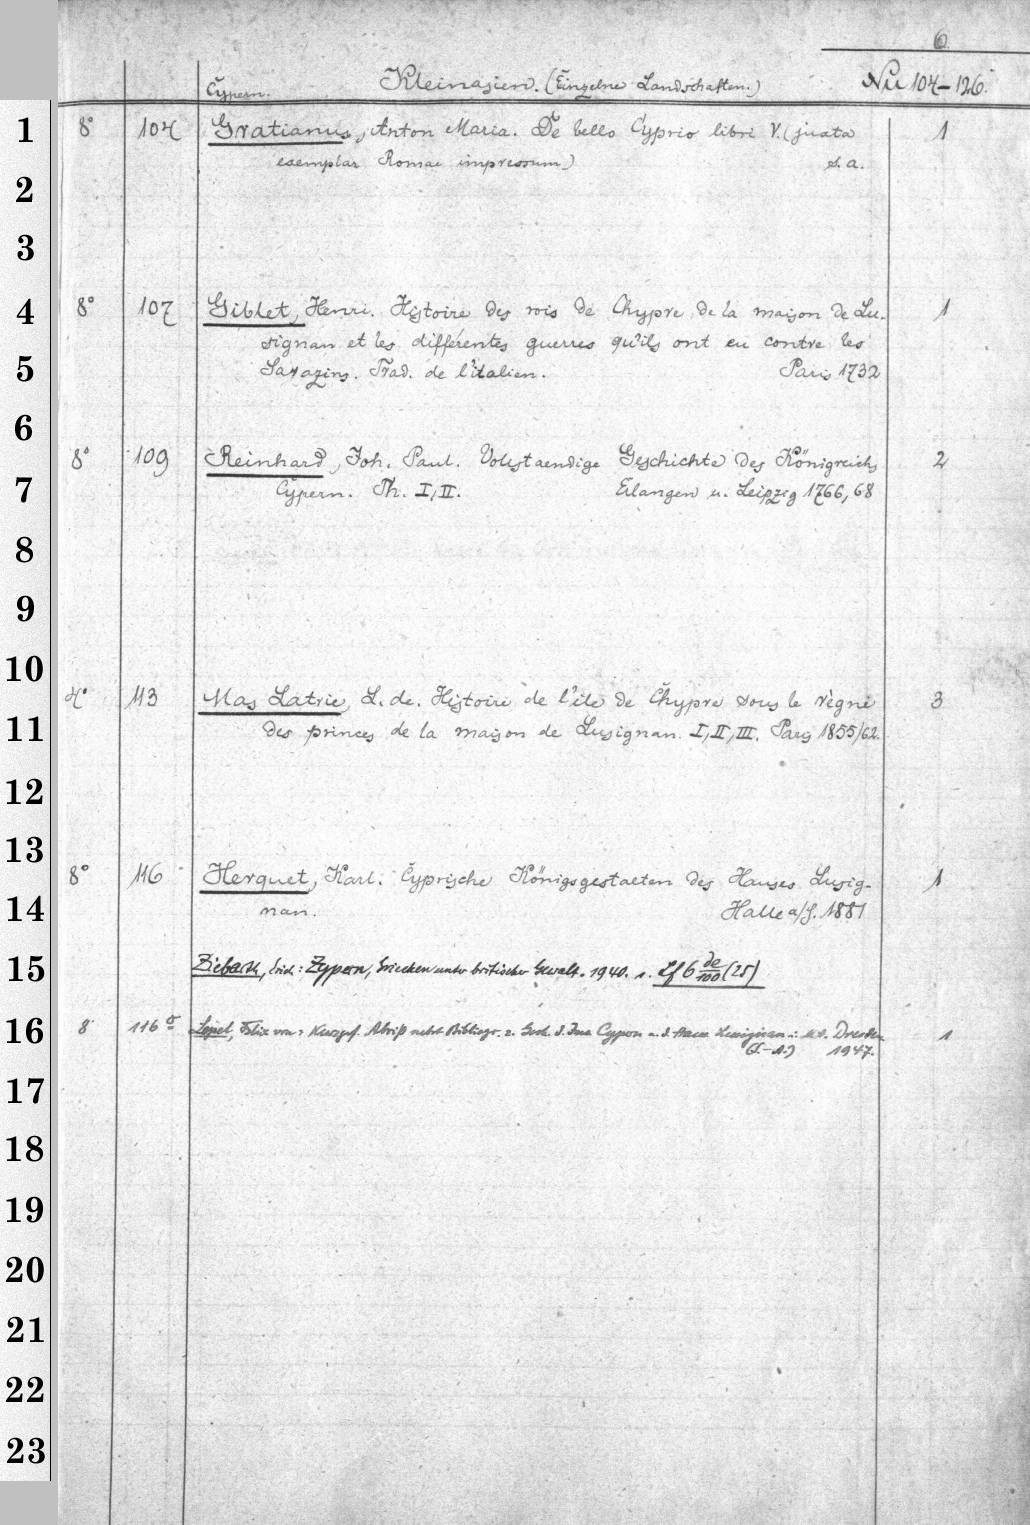 6
Cypern. Kleinasien. (Einzelne Landschaften.) Nu 104-126.
1 8° 104 Gratianus, Anton Maria. De bello Cyprio libri V. (juxta 1
exemplar Romae impressum) s. a.
2
3
4 8° 107 Giblet, Henri. Histoire des rois de Chypre de la maison de Lu- 1
signan et les différentes guerres qu'ils ont eu contre les
5 Sarazins. Trad. de l'italien. Paris 1732
6
8° 109 Reinhard, Joh. Paul. Vollstaendige Geschichte des Königreichs 2
7 Cypern. Th. I, II. Erlangen u. Leipzig 1766, 68
8
9
10
4° 113 Mas Latrie, L. de. Histoire de l'île de Chypre sous le règne 3
11 des princes de la maison de Lusignan. I, II, III. Paris 1855/62.
12
13
8° 116 Herquet, Karl. Cyprische Königsgestalten des Hauses Lusig- 1
14 nan. Halle a/S. 1881
15 Ziebarth, Erich: Zypern, Griechen unter britischer Gewalt. 1940. s. Lf 6 de/100 (25)
16 8 116 a Felix von: Kurzgef. Abriß nebst Bibliogr. z. Gesch. d. Cypern u. d. Haus Lusignan Dresden 1
1947.
17
18
19
20
21
22
23